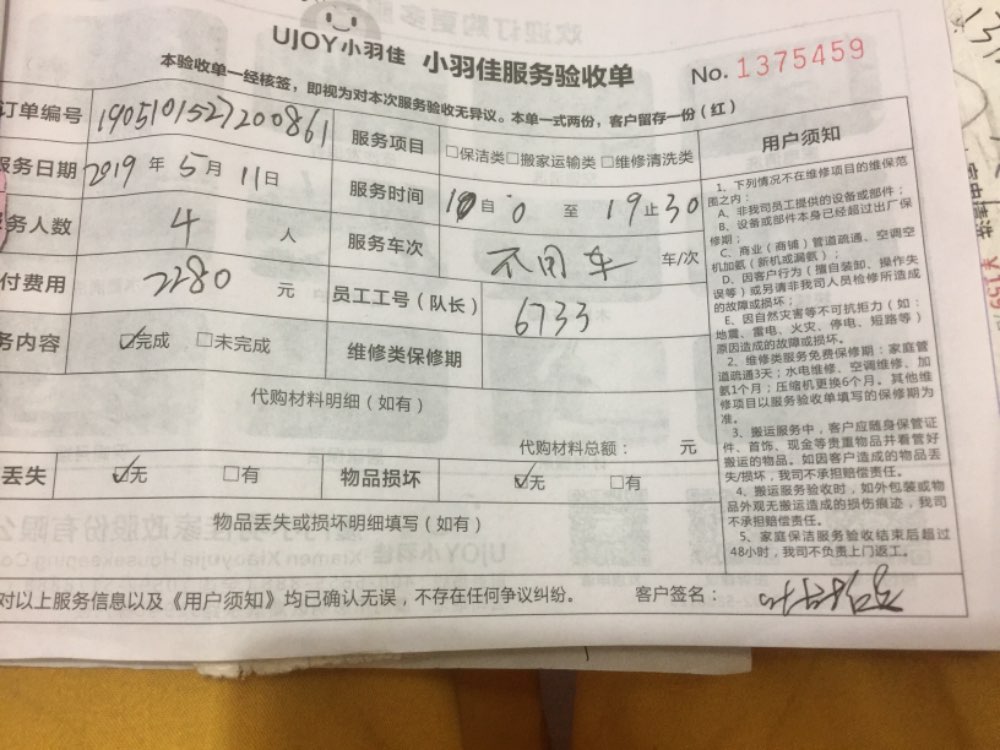 UJOY小羽佳 小羽佳服务验收单 No. 1375459
本验收单一经核签，即视为对本次服务验收无异议。本单一式两份，客户留存一份（红）
订单编号 190510152720086 1 服务项目 □保洁类□搬家运输类□维修清洗类
服务日期 2019 年 5 月 11 日 服务时间 10 自 0 至 19 止 30
务人数 4 人 服务车次 不用车 车/次
付费用 2280 元 员工工号（队长） 6733
务内容 ☑完成 □未完成 维修类保修期
代购材料明细（如有）
代购材料总额： 元
丢失 ☑无 □有 物品损坏 ☑无 □有
物品丢失或损坏明细填写（如有）
对以上服务信息以及《用户须知》均已确认无误，不存在任何争议纠纷。 客户签名：
用户须知
1、下列情况不在维修项目的维保范
围之内：
A、非我司员工提供的设备或部件；
B、设备或部件本身已经超过出厂保
修期；
C、商业（商铺）管道疏通、空调空
机加氨（新机或漏氨）；
D、因客户行为（擅自装卸、操作失
误等）或另请非我司人员检修所造成
的故障或损坏；
E、因自然灾害等不可抗拒力（如：
地震、雷电、火灾、停电、短路等）
原因造成的故障或损坏。
2、维修类服务免费保修期：家庭管
道疏通3天；水电维修、空调维修、加
氨1个月；压缩机更换6个月。其他维
修项目以服务验收单填写的保修期为
准。
3、搬运服务中，客户应随身保管证
件、首饰、现金等贵重物品并看管好
搬运的物品。如因客户造成的物品丢
失/损坏，我司不承担赔偿责任。
4、搬运服务验收时，如外包装或物
品外观无搬运造成的损伤痕迹，我司
不承担赔偿责任。
5、家庭保洁服务验收结束后超过
48小时，我司不负责上门返工。